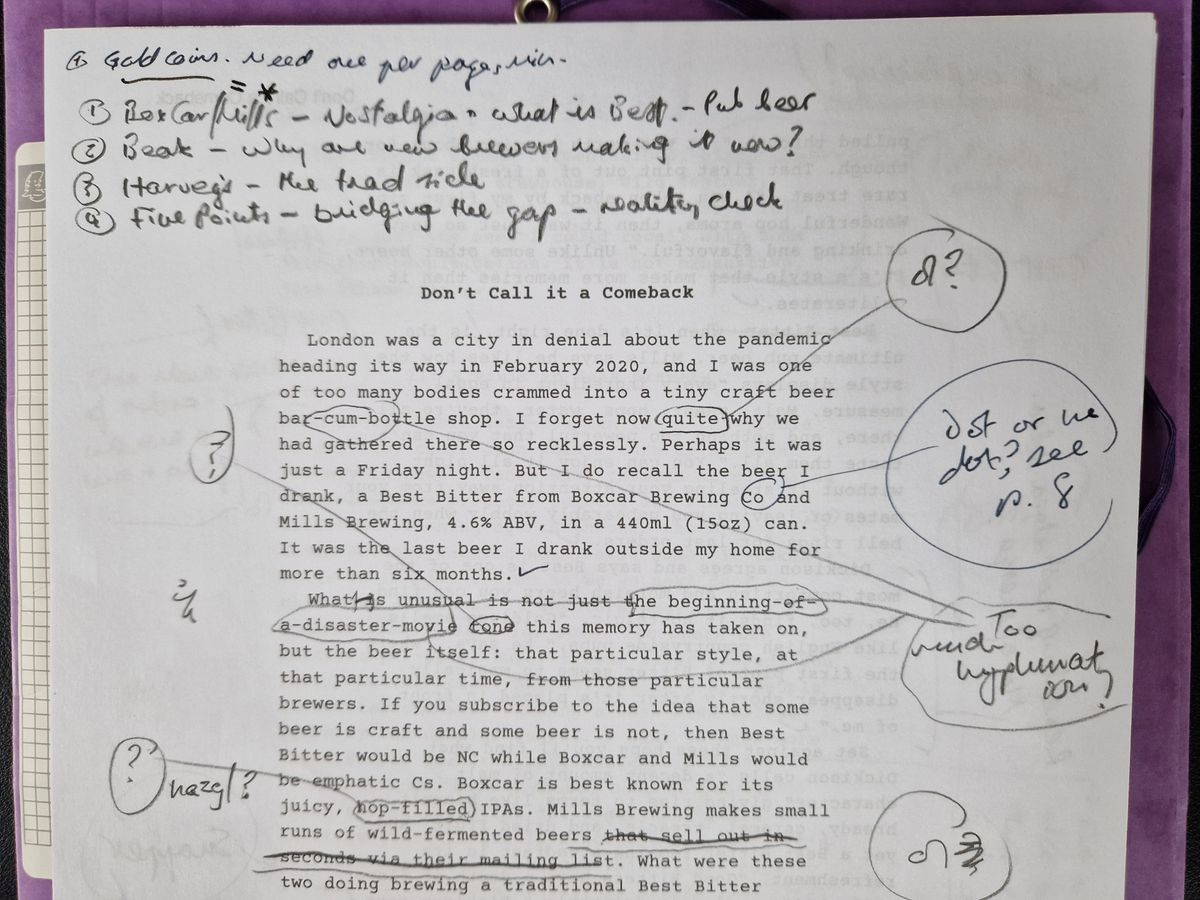 Gold coins. Need one per page, min.
① BoxCar/Mills – Nostalgia + what is Best. – Pub beer
② Beak – Why are new brewers making it now?
③ Harvey's – the trad side
④ Five Points – bridging the gap – reality check
?
Don't Call it a Comeback
London was a city in denial about the pandemic
heading its way in February 2020, and I was one
of too many bodies crammed into a tiny craft beer
bar-cum-bottle shop. I forget now quite why we
had gathered there so recklessly. Perhaps it was
just a Friday night. But I do recall the beer I
drank, a Best Bitter from Boxcar Brewing Co and
Mills Brewing, 4.6% ABV, in a 440ml (15oz) can.
It was the last beer I drank outside my home for
more than six months.
Dot or no
dot? see
p. 8
?
What is unusual is not just the beginning-of-
a-disaster-movie tone this memory has taken on,
but the beer itself: that particular style, at
that particular time, from those particular
brewers. If you subscribe to the idea that some
beer is craft and some beer is not, then Best
Bitter would be NC while Boxcar and Mills would
be emphatic Cs. Boxcar is best known for its
juicy, hop-filled IPAs. Mills Brewing makes small
runs of wild-fermented beers that sell out in
seconds via their mailing list. What were these
two doing brewing a traditional Best Bitter
Too
much
hyphenat
ion?
?
hazy/?